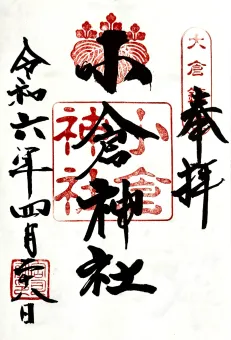 奉拝
小倉神社
小倉神社
令和六年四月二十八日